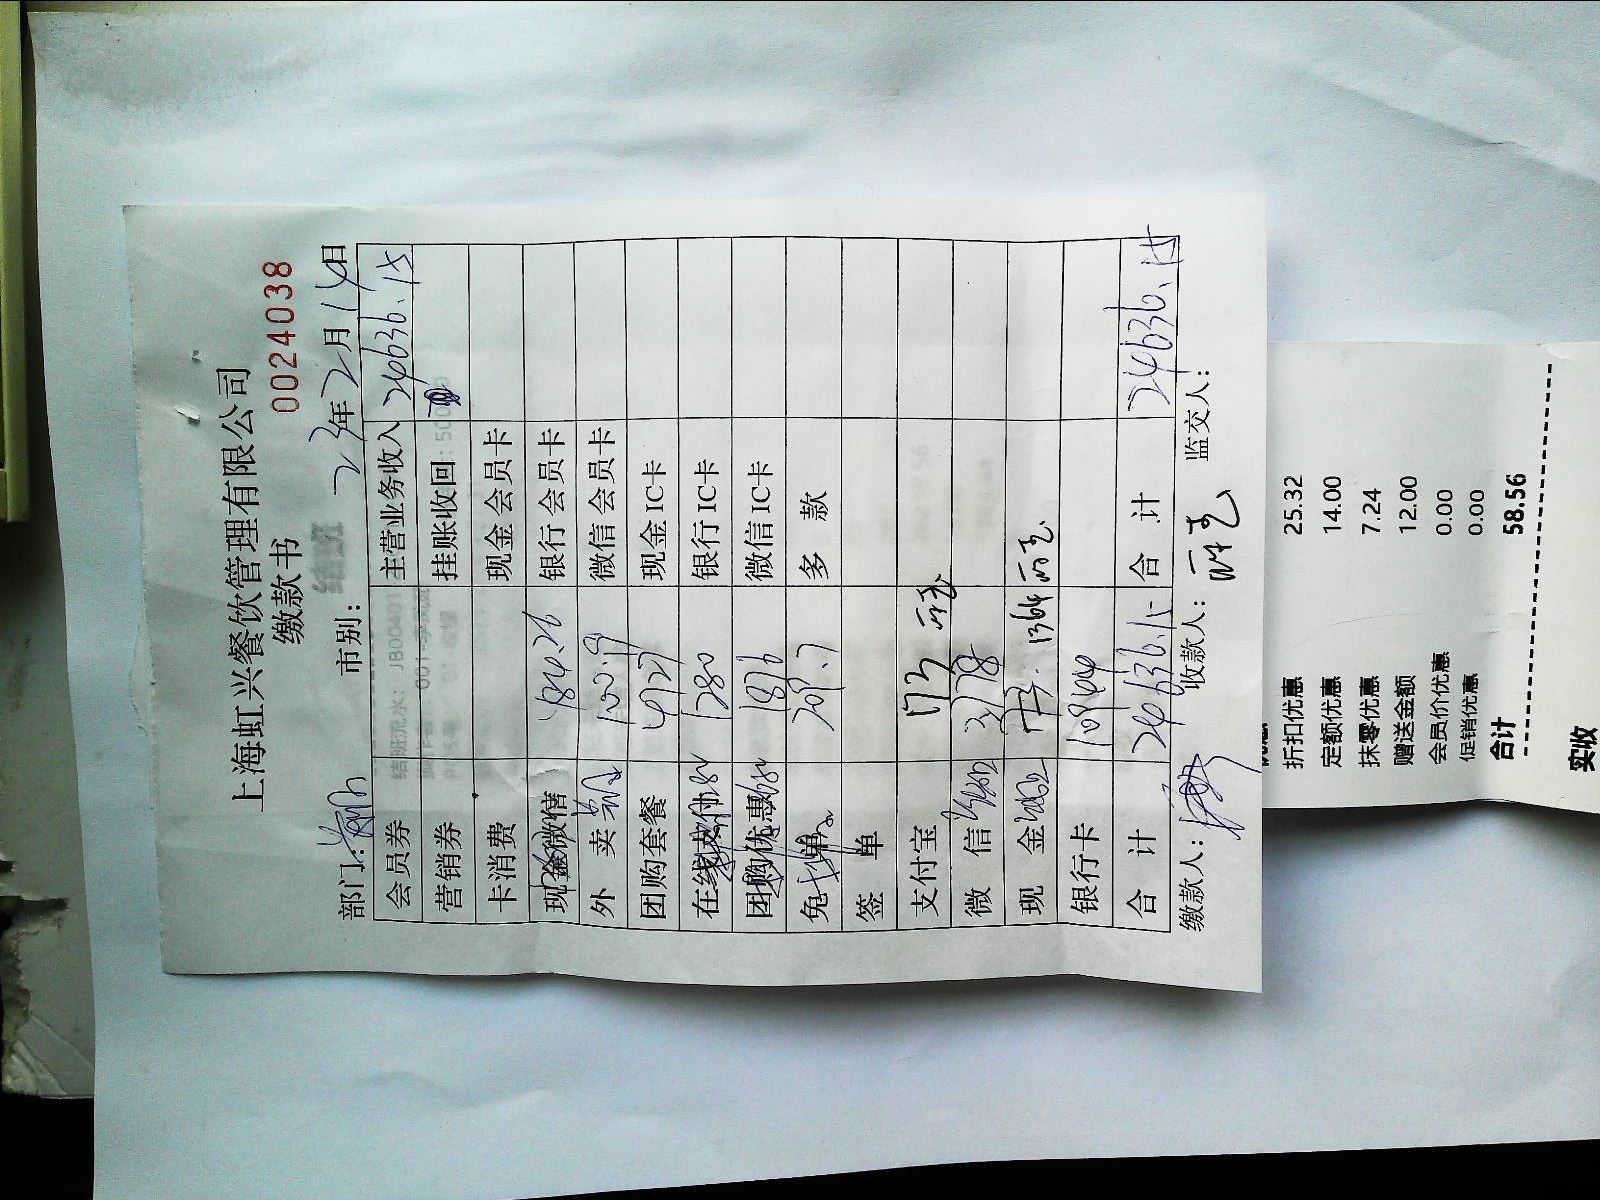 上海虹兴餐饮管理有限公司
缴款书
0024038
部门:
市别:
23年2月14日
会员券 主营业务收入 24636.15
营销券 挂账收回
卡消费 现金会员卡
银行会员卡
外卖 微信会员卡
团购套餐 4927 现金IC卡
1280 银行IC卡
1876 微信IC卡
209.7 多款
签单
支付宝 173
微信 3778
现金 1364
银行卡 10944
合计 24636.15 合计 24636.15
缴款人:
收款人:
监交人:
折扣优惠 25.32
定额优惠 14.00
抹零优惠 7.24
赠送金额 12.00
会员价优惠 0.00
促销优惠 0.00
合计 58.56
实收